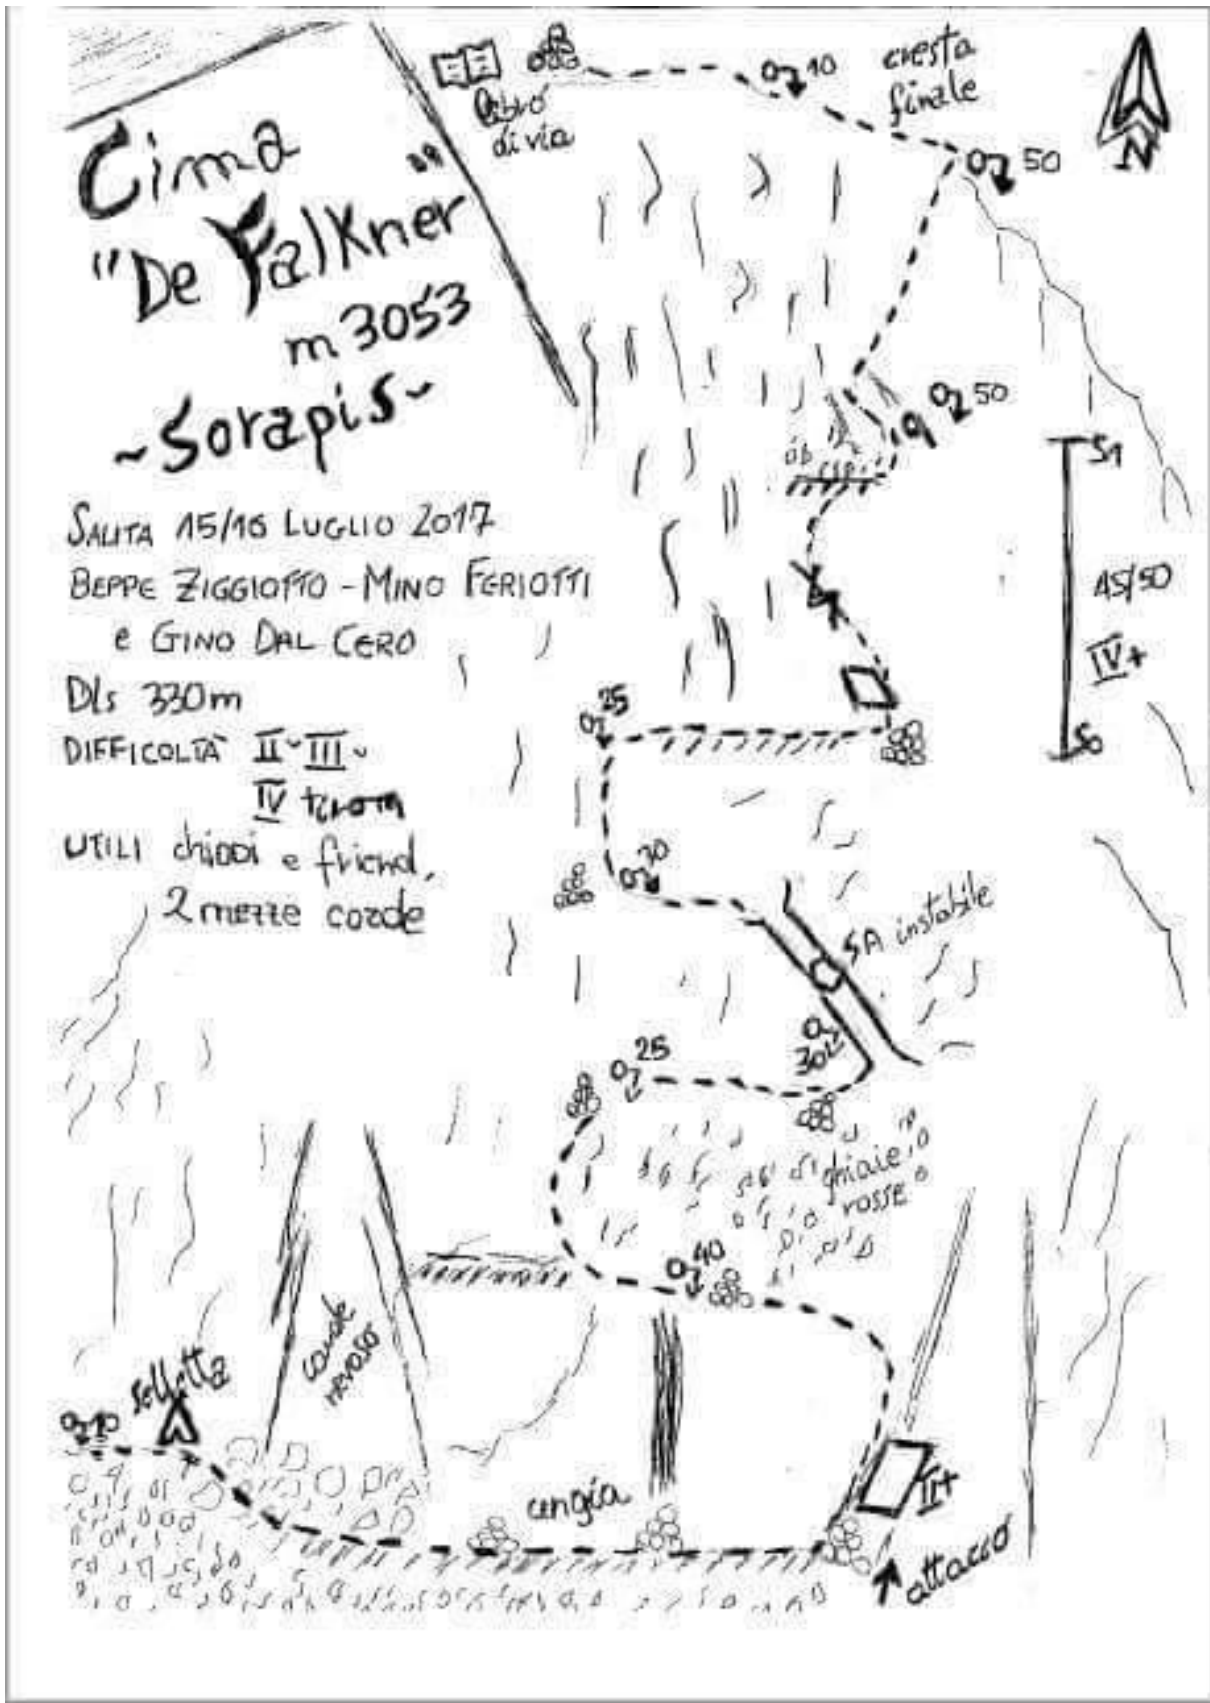 Cima
"De Falkner"
m 3053
~Sorapis~
SALITA 15/16 LUGLIO 2017
BEPPE ZIGGIOTTO - MINO FERIOTTI
e GINO DAL CERO
Dls 330m
DIFFICOLTÀ II - III -
IV
UTILI chiodi e friend,
2 mezze corde
libro
di via
10
cresta
finale
N
50
50
S1
45/50
IV+
S0
25
30
SA instabile
30
25
ghiaie
rosse
40
canale
nevoso
selletta
cengia
II+
attacco